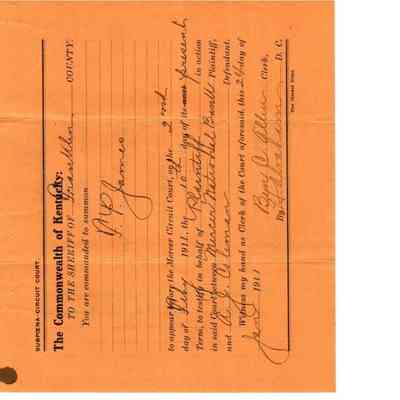 SUBPŒNA-CIRCUIT COURT.
The Commonwealth of Kentucky:
TO THE SHERIFF OF Franklin COUNTY:
You are commanded to summon
James
to appear before the Mercer Circuit Court, on the 2nd
day of Feby 1911, the 10th day of its present
Term, to testify in behalf of Plaintiff in action
in said Court between Mercer National Bank Plaintiff,
and Coleman Defendant.
Witness my hand as Clerk of the Court aforesaid, this day of
Jany 1911 Ben C Allen Clerk,
By D. C.